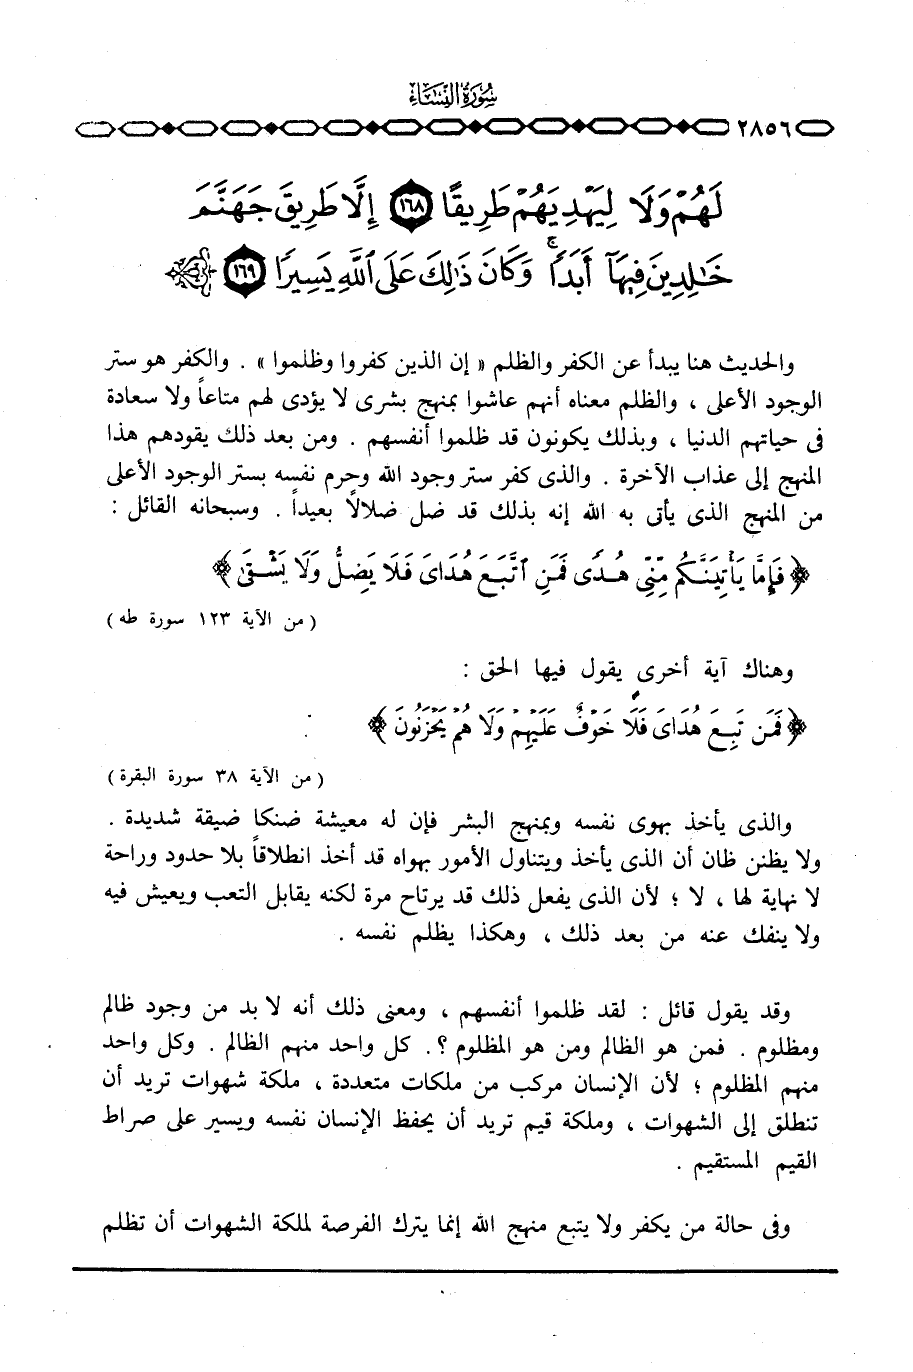 سُورَةُ النِّسَاء
٢٨٥٦
لَهُمْ وَلَا لِيَهْدِيَهُمْ طَرِيقًا ١٦٨ إِلَّا طَرِيقَ جَهَنَّمَ
خَٰلِدِينَ فِيهَآ أَبَدًا ۚ وَكَانَ ذَٰلِكَ عَلَى ٱللَّهِ يَسِيرًا ١٦٩
والحديث هنا يبدأ عن الكفر والظلم « إن الذين كفروا وظلموا » . والكفر هو ستر
الوجود الأعلى ، والظلم معناه أنهم عاشوا بمنهج بشرى لا يؤدى لهم متاعاً ولا سعادة
فى حياتهم الدنيا ، وبذلك يكونون قد ظلموا أنفسهم . ومن بعد ذلك يقودهم هذا
المنهج إلى عذاب الآخرة . والذى كفر ستر وجود الله وحرم نفسه بستر الوجود الأعلى
من المنهج الذى يأتى به الله إنه بذلك قد ضل ضلالاً بعيداً . وسبحانه القائل :
﴿ فَإِمَّا يَأْتِيَنَّكُم مِّنِّى هُدًى فَمَنِ ٱتَّبَعَ هُدَاىَ فَلَا يَضِلُّ وَلَا يَشْقَىٰ ﴾
( من الآية ١٢٣ سورة طه )
وهناك آية أخرى يقول فيها الحق :
﴿ فَمَن تَبِعَ هُدَاىَ فَلَا خَوْفٌ عَلَيْهِمْ وَلَا هُمْ يَحْزَنُونَ ﴾
( من الآية ٣٨ سورة البقرة )
والذى يأخذ بهوى نفسه وبمنهج البشر فإن له معيشة ضنكا ضيقة شديدة .
ولا يظنن ظان أن الذى يأخذ ويتناول الأمور بهواه قد أخذ انطلاقاً بلا حدود وراحة
لا نهاية لها ، لا ؛ لأن الذى يفعل ذلك قد يرتاح مرة لكنه يقابل التعب ويعيش فيه
ولا ينفك عنه من بعد ذلك ، وهكذا يظلم نفسه .
وقد يقول قائل : لقد ظلموا أنفسهم ، ومعنى ذلك أنه لا بد من وجود ظالم
ومظلوم . فمن هو الظالم ومن هو المظلوم ؟. كل واحد منهم الظالم . وكل واحد
منهم المظلوم ؛ لأن الإنسان مركب من ملكات متعددة ، ملكة شهوات تريد أن
تنطلق إلى الشهوات ، وملكة قيم تريد أن يحفظ الإنسان نفسه ويسير على صراط
القيم المستقيم .
وفى حالة من يكفر ولا يتبع منهج الله إنما يترك الفرصة لملكة الشهوات أن تظلم